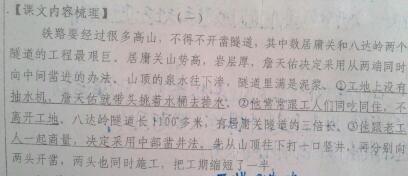 【课文内容梳理】
（一）
铁路要经过很多高山，不得不开凿隧道，其中数居庸关和八达岭两个
隧道的工程最艰巨。居庸关山势高，岩层厚，詹天佑决定采用从两端同时
向中间凿进的办法。山顶的泉水往下渗，隧道里满是泥浆。①工地上没有
抽水机，詹天佑就带头挑着水桶去排水。②他常常跟工人们同吃同住，不
离开工地。八达岭隧道长1100多米，有居庸关隧道的三倍长。③他跟老工
人一起商量，决定采用中部凿井法。先从山顶往下打一口竖井，再分别向
两头开凿，两头也同时施工，把工期缩短了一半